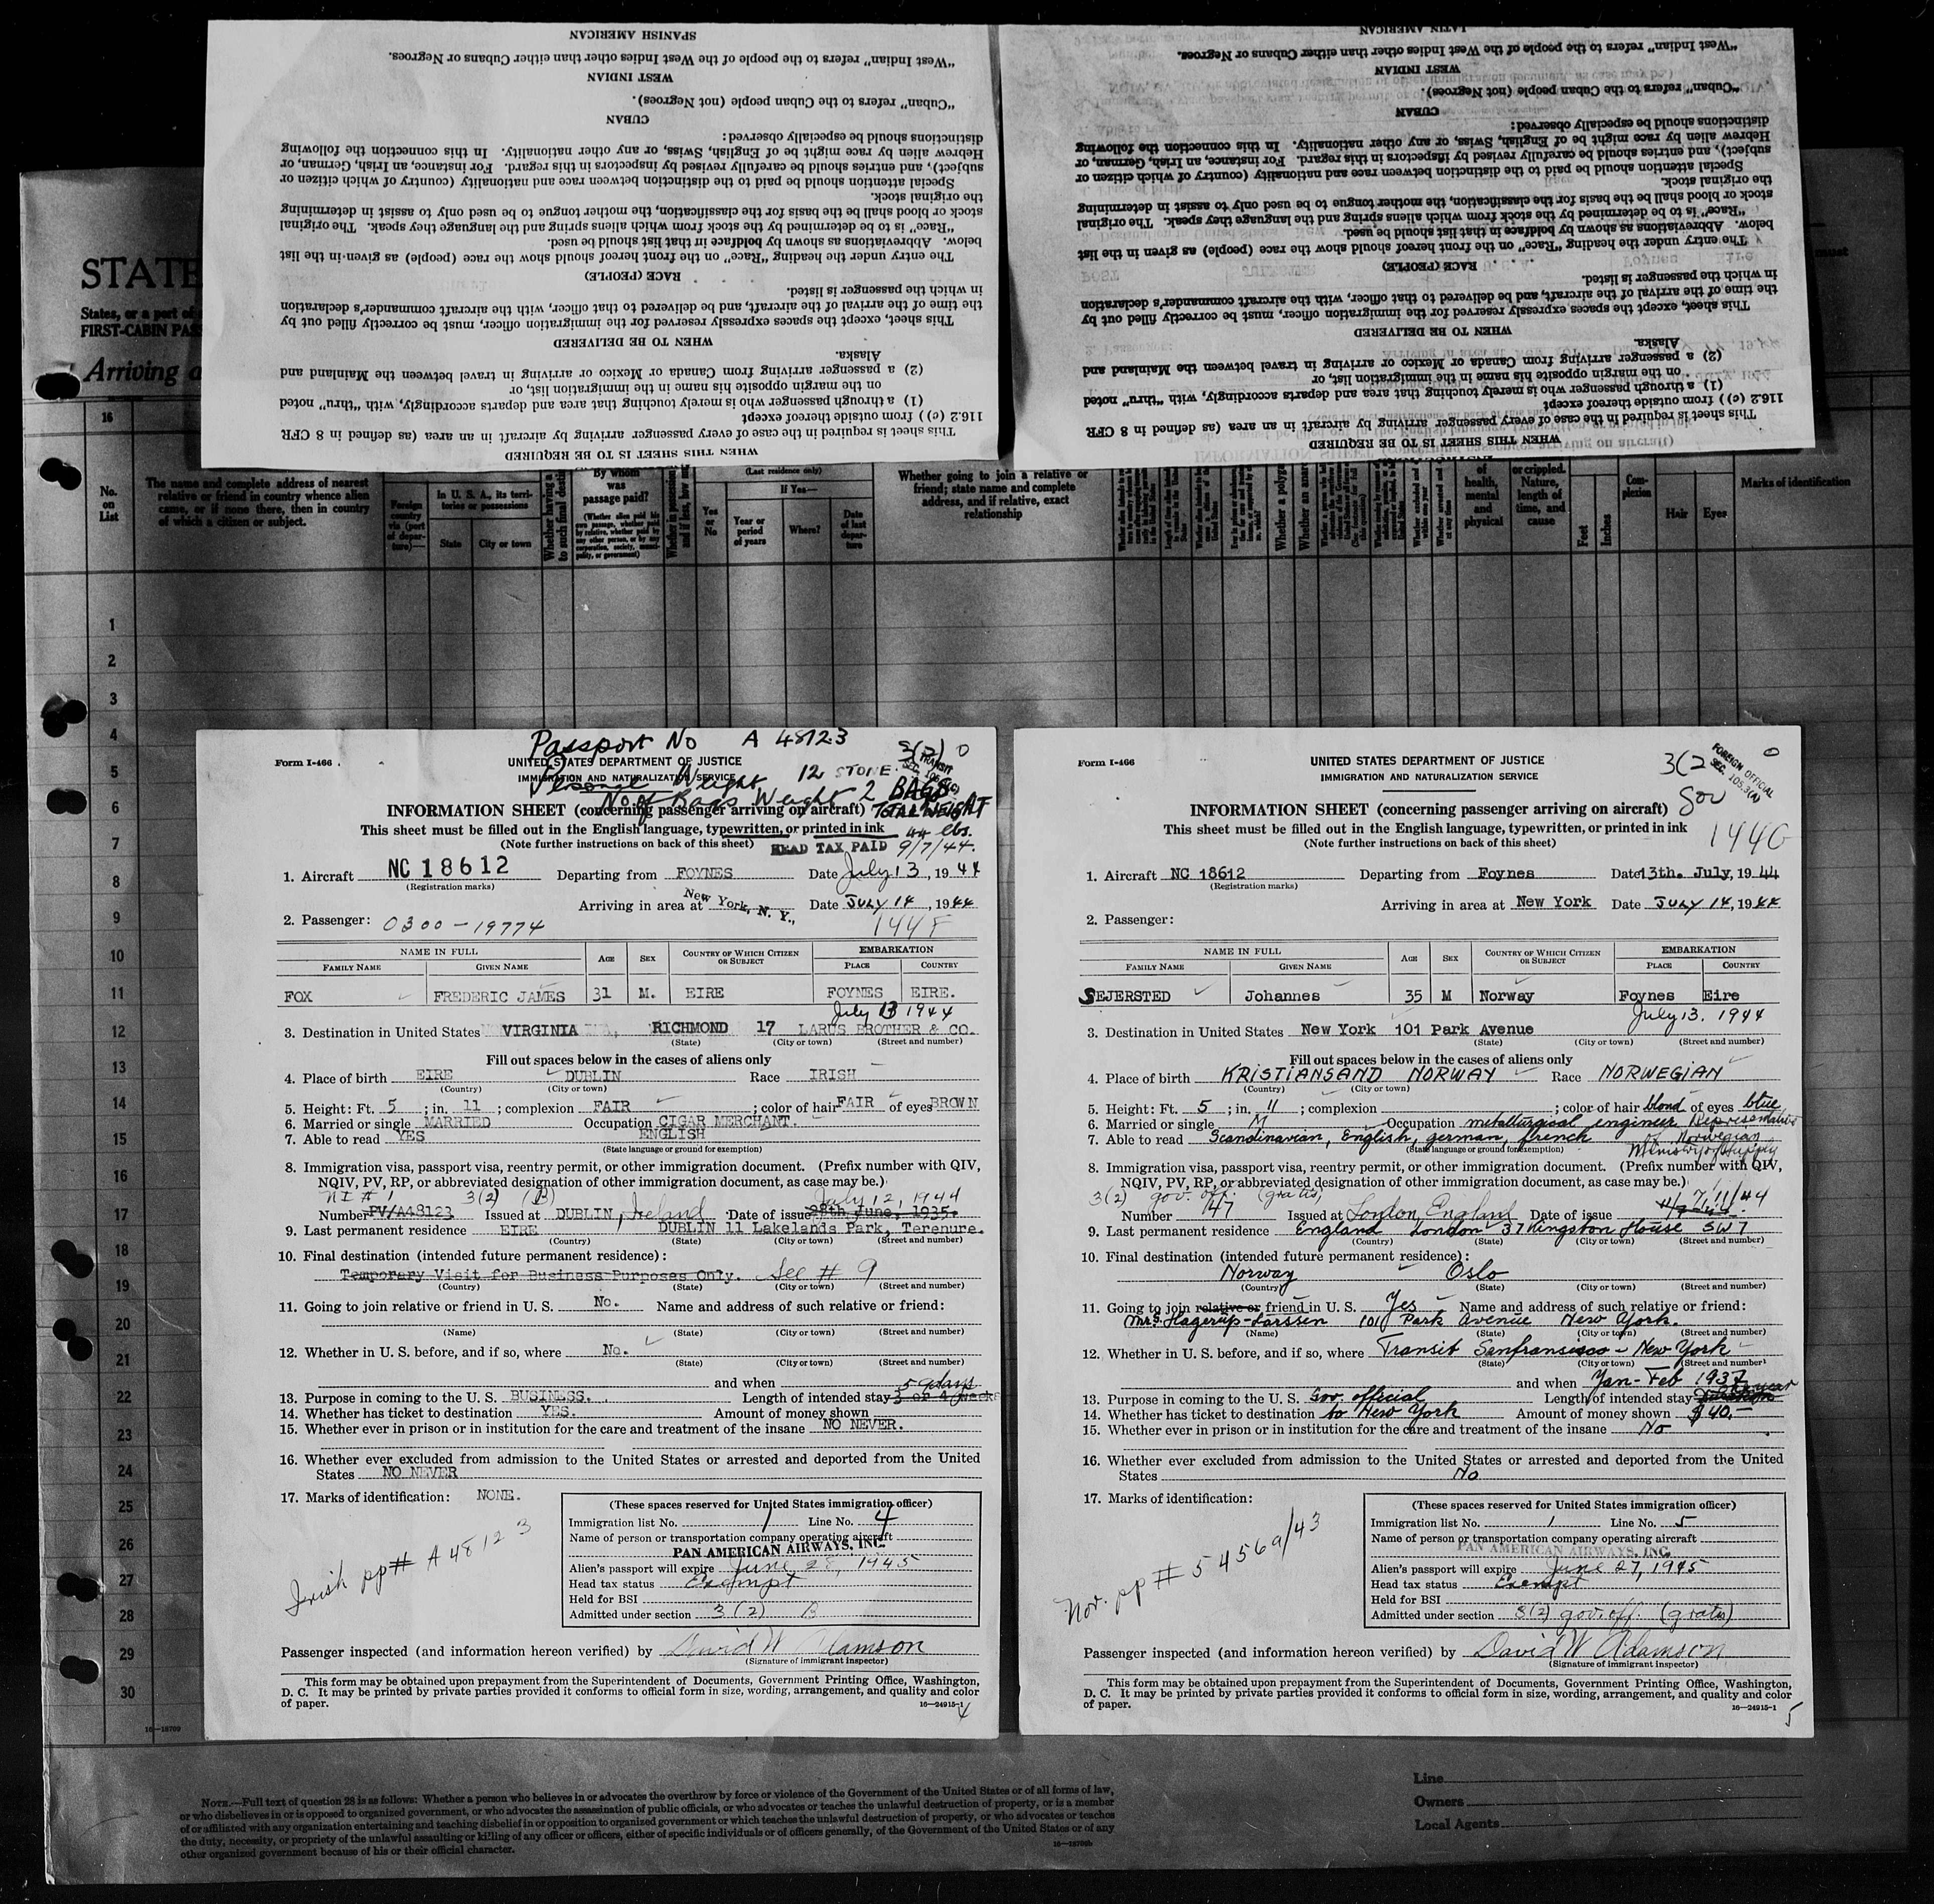 SPANISH AMERICAN
"West Indian" refers to the people of the West Indies other than either Cubans or Negroes.
WEST INDIAN
"Cuban" refers to the Cuban people (not Negroes).
CUBAN
distinctions should be especially observed:
Hebrew alien by race might be of English, Swiss, or any other nationality. In this connection the following
subject), and entries should be carefully revised by inspectors in this regard. For instance, an Irish, German, or
Special attention should be paid to the distinction between race and nationality (country of which citizen or
the original stock.
stock or blood shall be the basis for the classification, the mother tongue to be used only to assist in determining
"Race" is to be determined by the stock from which aliens spring and the language they speak. The original
below. Abbreviations as shown by boldface in that list should be used.
The entry under the heading "Race" on the front hereof should show the race (people) as given in the list
RACE (PEOPLE)
in which the passenger is listed.
the time of the arrival of the aircraft, and be delivered to that officer, with the aircraft commander's declaration
This sheet, except the spaces expressly reserved for the immigration officer, must be correctly filled out by
WHEN TO BE DELIVERED
Alaska.
(2) a passenger arriving from Canada or Mexico or arriving in travel between the Mainland and
on the margin opposite his name in the immigration list, or
(1) a through passenger who is merely touching that area and departs accordingly, with "thru" noted
116.2 (c)) from outside thereof except
This sheet is required in the case of every passenger arriving by aircraft in an area (as defined in 8 CFR
WHEN THIS SHEET IS TO BE REQUIRED
LATIN AMERICAN
"West Indian" refers to the people of the West Indies other than either Cubans or Negroes.
WEST INDIAN
"Cuban" refers to the Cuban people (not Negroes).
CUBAN
distinctions should be especially observed:
Hebrew alien by race might be of English, Swiss, or any other nationality. In this connection the following
subject), and entries should be carefully revised by inspectors in this regard. For instance, an Irish, German, or
Special attention should be paid to the distinction between race and nationality (country of which citizen or
the original stock.
stock or blood shall be the basis for the classification, the mother tongue to be used only to assist in determining
"Race" is to be determined by the stock from which aliens spring and the language they speak. The original
below. Abbreviations as shown by boldface in that list should be used.
The entry under the heading "Race" on the front hereof should show the race (people) as given in the list
RACE (PEOPLE)
in which the passenger is listed.
the time of the arrival of the aircraft, and be delivered to that officer, with the aircraft commander's declaration
This sheet, except the spaces expressly reserved for the immigration officer, must be correctly filled out by
WHEN TO BE DELIVERED
Alaska.
(2) a passenger arriving from Canada or Mexico or arriving in travel between the Mainland and
on the margin opposite his name in the immigration list, or
(1) a through passenger who is merely touching that area and departs accordingly, with "thru" noted
116.2 (c)) from outside thereof except
This sheet is required in the case of every passenger arriving by aircraft in an area (as defined in 8 CFR
WHEN THIS SHEET IS TO BE REQUIRED
STATE
States, or a port of
FIRST-CABIN PAS
Arriving a
16
No. on List
The name and complete address of nearest relative or friend in country whence alien came, or if none there, then in country of which a citizen or subject.
Foreign country via (port of departure)—
In U. S. A., its territories or possessions
State
City or town
By whom was passage paid?
(Last residence only)
Yes or No
If Yes—
Year or period of years
Where?
Date of last departure
Whether going to join a relative or friend; state name and complete address, and if relative, exact relationship
of health, mental and physical
or crippled. Nature, length of time, and cause
Feet
Inches
Complexion
Hair
Eyes
Marks of identification
1
2
3
4
5
6
7
8
9
10
11
12
13
14
15
16
17
18
19
20
21
22
23
24
25
26
27
28
29
30
16—18709
Passport No A 48123
Form I-466
UNITED STATES DEPARTMENT OF JUSTICE
IMMIGRATION AND NATURALIZATION SERVICE
Personal Weight 12 STONE
3(2) 0
TRANSIT
No of Bags Weight 2 BAGS
TOTAL WEIGHT
44 lbs.
INFORMATION SHEET (concerning passenger arriving on aircraft)
This sheet must be filled out in the English language, typewritten, or printed in ink
(Note further instructions on back of this sheet)
HEAD TAX PAID 9/7/44.
1. Aircraft NC 18612 Departing from FOYNES Date July 13, 1944
(Registration marks)
Arriving in area at New York, N. Y., Date JULY 14, 1944
2. Passenger: 0300-19774
NAME IN FULL
FAMILY NAME
GIVEN NAME
AGE
SEX
COUNTRY OF WHICH CITIZEN OR SUBJECT
EMBARKATION
PLACE
COUNTRY
FOX FREDERIC JAMES 31 M. EIRE FOYNES EIRE.
July 13 1944
3. Destination in United States VIRGINIA RICHMOND 17 LARUS BROTHER & CO.
(State) (City or town) (Street and number)
Fill out spaces below in the cases of aliens only
4. Place of birth EIRE DUBLIN Race IRISH
(Country) (City or town)
5. Height: Ft. 5; in. 11; complexion FAIR; color of hair FAIR of eyes BROWN
6. Married or single MARRIED Occupation CIGAR MERCHANT.
7. Able to read YES ENGLISH
(State language or ground for exemption)
8. Immigration visa, passport visa, reentry permit, or other immigration document. (Prefix number with QIV,
NQIV, PV, RP, or abbreviated designation of other immigration document, as case may be.)
NI # 1 3(2) (B) July 12, 1944
Number PV/A48123 Issued at DUBLIN, Ireland Date of issue 28th June, 1935.
9. Last permanent residence EIRE DUBLIN 11 Lakelands Park, Terenure.
(Country) (State) (City or town) (Street and number)
10. Final destination (intended future permanent residence):
Temporary Visit for Business Purposes Only. See # 9
(Country) (State) (City or town) (Street and number)
11. Going to join relative or friend in U. S. No. Name and address of such relative or friend:
(Name) (State) (City or town) (Street and number)
12. Whether in U. S. before, and if so, where No.
(State) (City or town) (Street and number)
and when
5 days
13. Purpose in coming to the U. S. BUSINESS. Length of intended stay 3 or 4 weeks
14. Whether has ticket to destination YES. Amount of money shown
15. Whether ever in prison or in institution for the care and treatment of the insane NO NEVER.
16. Whether ever excluded from admission to the United States or arrested and deported from the United
States NO NEVER
17. Marks of identification: NONE.
Irish pp# A 48123
(These spaces reserved for United States immigration officer)
Immigration list No. 1 Line No. 4
Name of person or transportation company operating aircraft
PAN AMERICAN AIRWAYS, INC.
Alien's passport will expire June 28, 1945
Head tax status Exempt
Held for BSI
Admitted under section 3(2) B
Passenger inspected (and information hereon verified) by David W Adamson
(Signature of immigrant inspector)
This form may be obtained upon prepayment from the Superintendent of Documents, Government Printing Office, Washington,
D. C. It may be printed by private parties provided it conforms to official form in size, wording, arrangement, and quality and color
of paper.
16—24915-1
4
Form I-466
UNITED STATES DEPARTMENT OF JUSTICE
IMMIGRATION AND NATURALIZATION SERVICE
3(2
FOREIGN OFFICIAL
SEC. 105.3(A)
0
Gov
INFORMATION SHEET (concerning passenger arriving on aircraft)
This sheet must be filled out in the English language, typewritten, or printed in ink
(Note further instructions on back of this sheet)
1. Aircraft NC 18612 Departing from Foynes Date 13th. July, 1944
(Registration marks)
Arriving in area at New York Date JULY 14, 1944
2. Passenger:
NAME IN FULL
FAMILY NAME
GIVEN NAME
AGE
SEX
COUNTRY OF WHICH CITIZEN OR SUBJECT
EMBARKATION
PLACE
COUNTRY
SEJERSTED Johannes 35 M Norway Foynes Eire
July 13. 1944
3. Destination in United States New York 101 Park Avenue
(State) (City or town) (Street and number)
Fill out spaces below in the cases of aliens only
4. Place of birth KRISTIANSAND NORWAY Race NORWEGIAN
(Country) (City or town)
5. Height: Ft. 5; in. 11; complexion ; color of hair blond of eyes blue
6. Married or single M Occupation metallurgical engineer Representative
7. Able to read Scandinavian, English, german, french of Norwegian
(State language or ground for exemption) Ministry of Supply
8. Immigration visa, passport visa, reentry permit, or other immigration document. (Prefix number with QIV,
NQIV, PV, RP, or abbreviated designation of other immigration document, as case may be.)
3(2) gov. off. (gratis)
Number 147 Issued at London, England Date of issue 7/11/44
9. Last permanent residence England London 37 Kingston House SW 7
(Country) (State) (City or town) (Street and number)
10. Final destination (intended future permanent residence):
Norway Oslo
(Country) (State) (City or town) (Street and number)
11. Going to join relative or friend in U. S. Yes Name and address of such relative or friend:
Mrs. Hagerup-Larssen 101 Park Avenue New York.
(Name) (State) (City or town) (Street and number)
12. Whether in U. S. before, and if so, where Transit Sanfransisco - New York
(State) (City or town) (Street and number)
and when Jan-Feb 1937
13. Purpose in coming to the U. S. Gov. official Length of intended stay
14. Whether has ticket to destination to New York Amount of money shown $40.—
15. Whether ever in prison or in institution for the care and treatment of the insane No
16. Whether ever excluded from admission to the United States or arrested and deported from the United
States No
17. Marks of identification:
Nor. pp # 54569/43
(These spaces reserved for United States immigration officer)
Immigration list No. 1 Line No. 5
Name of person or transportation company operating aircraft
PAN AMERICAN AIRWAYS, INC.
Alien's passport will expire June 27, 1945
Head tax status Exempt
Held for BSI
Admitted under section 3(2) gov. off. (gratis)
Passenger inspected (and information hereon verified) by David W Adamson
(Signature of immigrant inspector)
This form may be obtained upon prepayment from the Superintendent of Documents, Government Printing Office, Washington,
D. C. It may be printed by private parties provided it conforms to official form in size, wording, arrangement, and quality and color
of paper.
16—24915-1
5
NOTE.—Full text of question 28 is as follows: Whether a person who believes in or advocates the overthrow by force or violence of the Government of the United States or of all forms of law,
or who disbelieves in or is opposed to organized government, or who advocates the assassination of public officials, or who advocates or teaches the unlawful destruction of property, or is a member
of or affiliated with any organization entertaining and teaching disbelief in or opposition to organized government or which teaches the unlawful destruction of property, or who advocates or teaches
the duty, necessity, or propriety of the unlawful assaulting or killing of any officer or officers, either of specific individuals or of officers generally, of the Government of the United States or of any
other organized government because of his or their official character.
16—18709b
Line
Owners
Local Agents